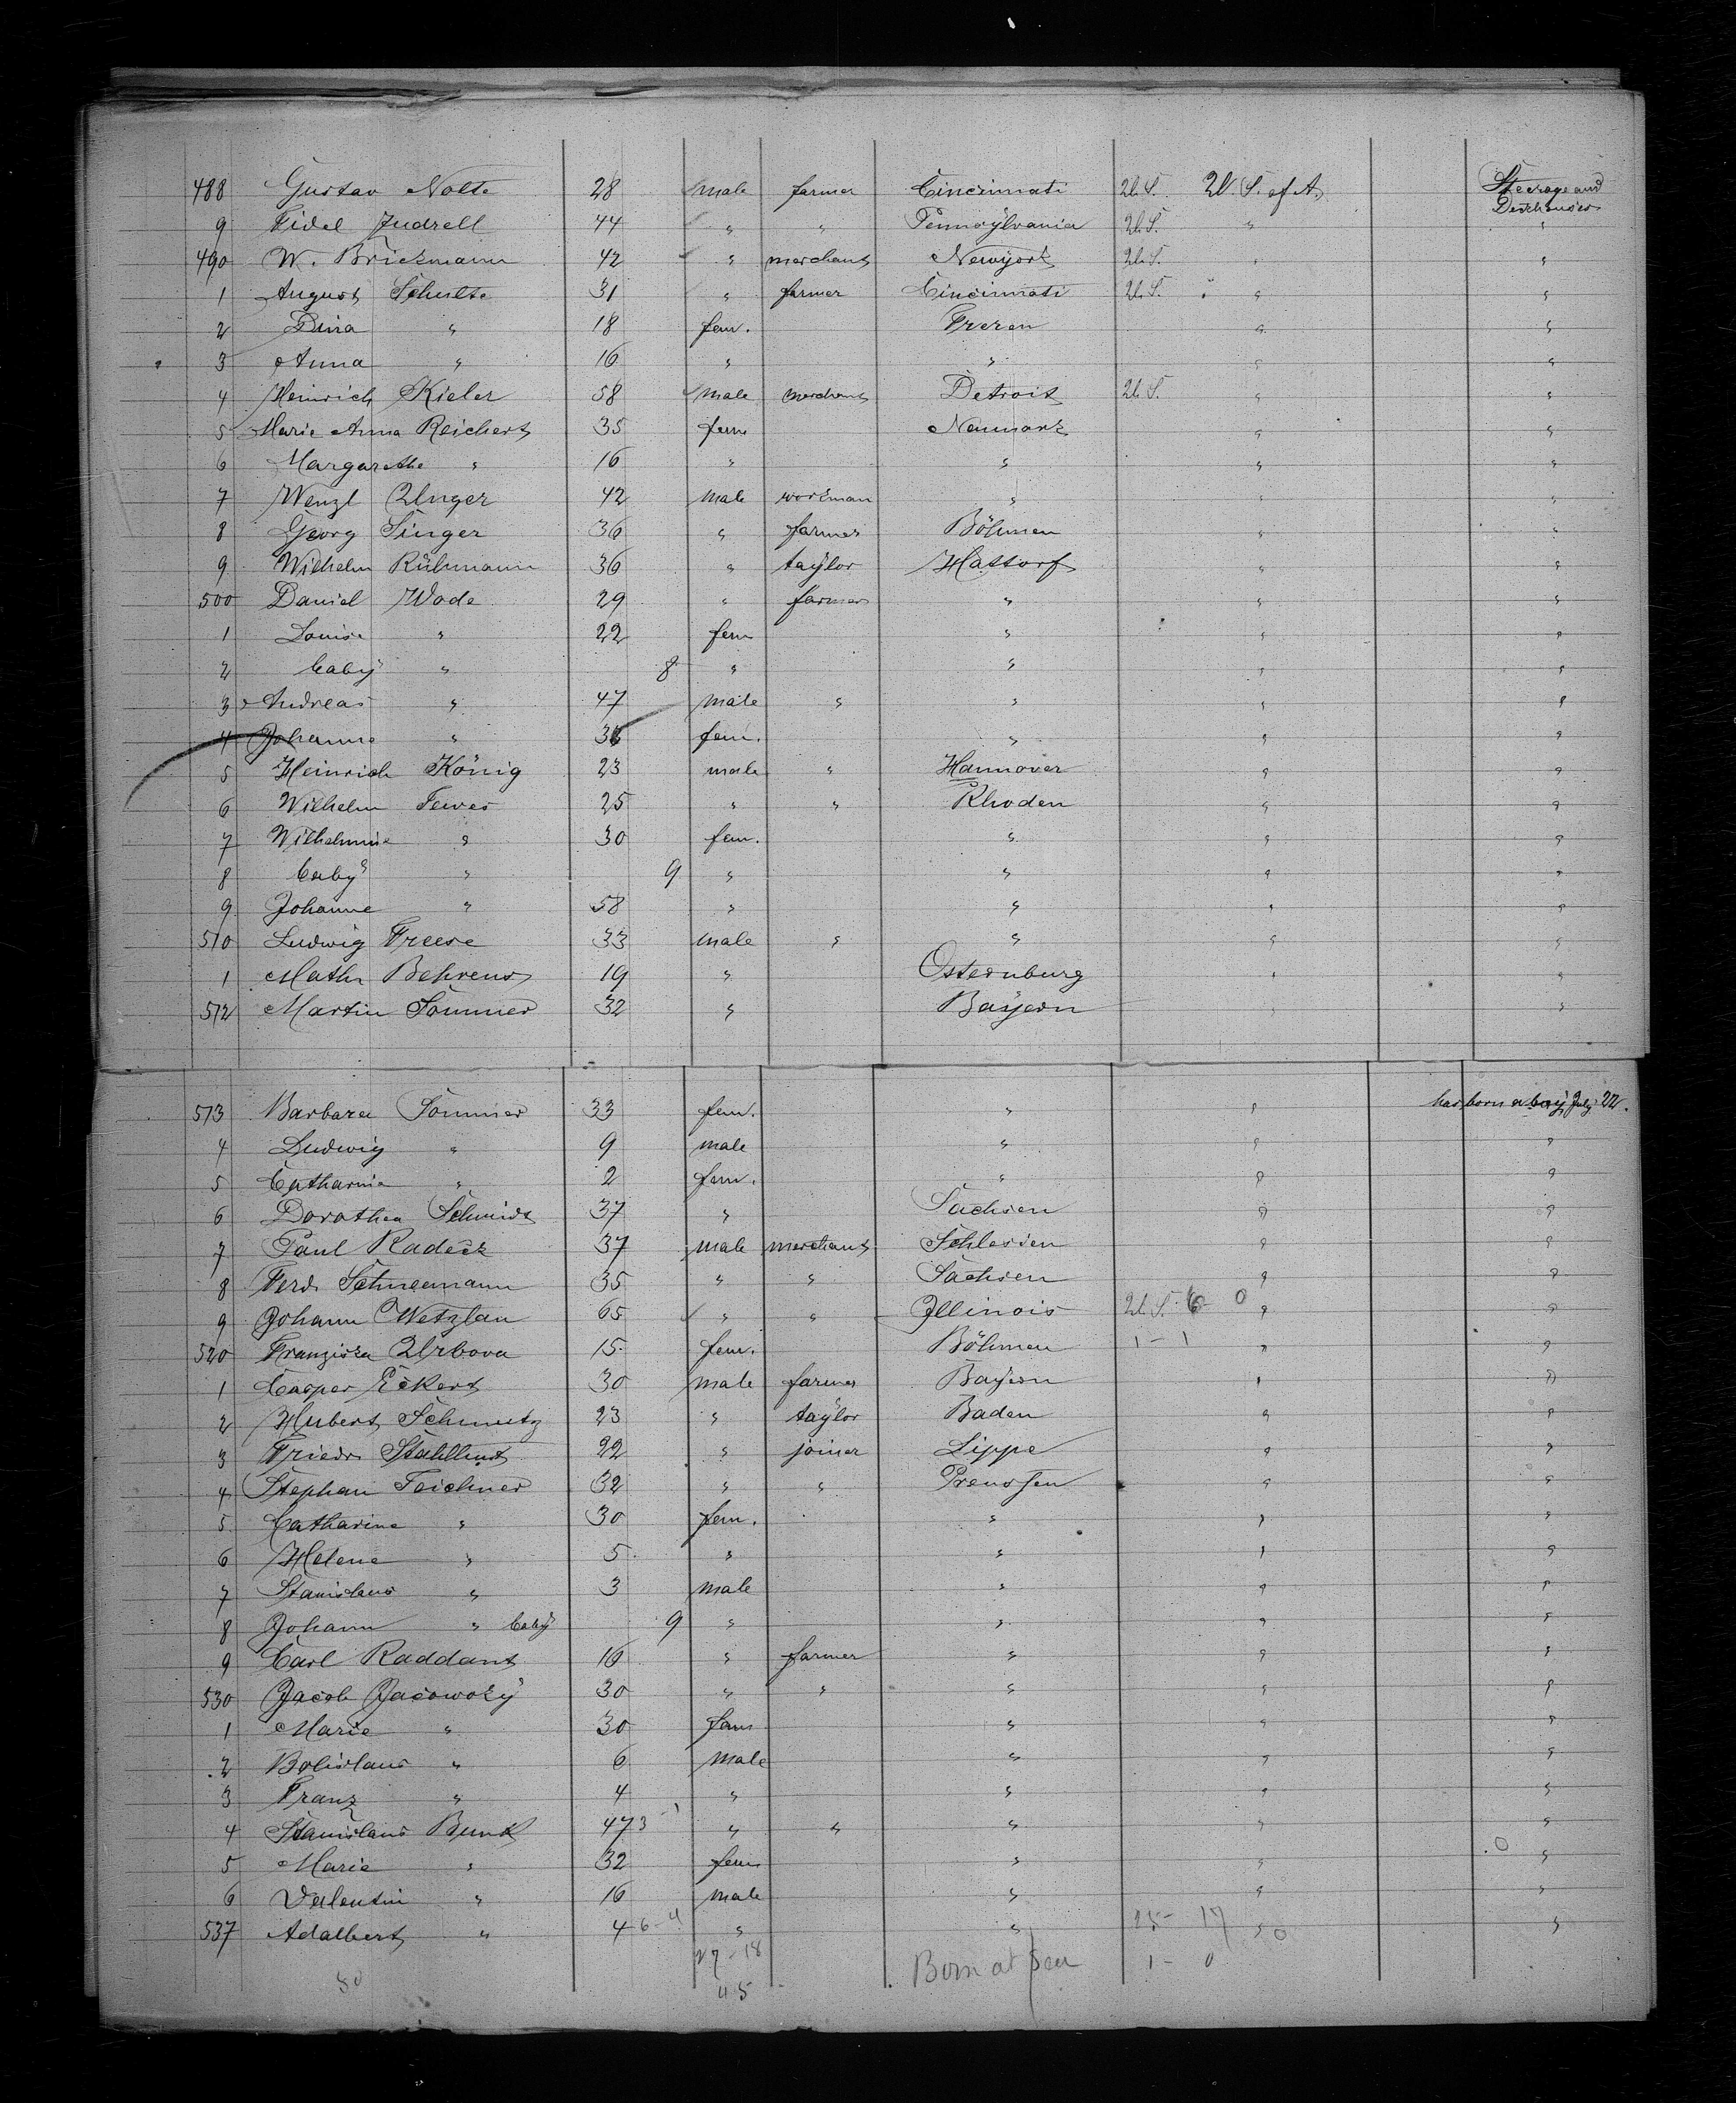 488 Gustav Nolte 28 male farmer Cincinnati U.S. U.S. of A. Steerage and
Deckhouses
9 Fidel Judrell 44 " " Pennsylvania U.S. " "
490 W. Brickmann 42 " merchant Newyork U.S. " "
1 August Schulte 31 " farmer Cincinnati U.S. " "
2 Dina " 18 fem. Freren " "
3 Anna " 16 " " " "
4 Heinrich Kieler 58 male merchant Detroit U.S. " "
5 Marie Anna Reichert 35 fem Neumark " "
6 Margarethe " 16 " " " "
7 Wenzl Unger 42 male workman " " "
8 Georg Singer 36 " farmer Böhmen " "
9 Wilhelm Rühmann 36 " taylor Hattorf " "
500 Daniel Wode 29 " farmer " " "
1 Louise " 22 fem " " "
2 baby " 8 " " " "
3 Andreas " 47 male " " " "
4 Johanne " fem. " " "
5 Heinrich König 23 male " Hannover " "
6 Wilhelm Tewes 25 " " Rhoden " "
7 Wilhelmine " 30 fem. " " "
8 baby " 9 " " " "
9 Johanne " 58 " " " "
510 Ludwig Freese 33 male " " " "
1 Math Behrens 19 " Osternburg " "
512 Martin Sommer 32 " Bayern " "
513 Barbara Sommer 33 fem. " " has born a boy July 22.
4 Ludwig " 9 male " " "
5 Catharina " 2 fem. " " "
6 Dorothea Schmidt 37 " Sachsen " "
7 Paul Radeck 37 male merchant Schlesien " "
8 Ferd. Schneemann 35 " " Sachsen " "
9 Johann Wetzlau 65 " " Illinois U.S. 6 0 " "
520 Franziska Urbova 15 fem. Böhmen 1 - 1 " "
1 Casper Eckert 30 male farmer Bayern " "
2 Hubert Schmutz 23 " taylor Baden " "
3 Friedr Stahlhut 22 " joiner Lippe " "
4 Stephan Teichner 32 " " Preussen " "
5 Catharine " 30 fem. " " "
6 Helene " 5 " " " "
7 Stanislaus " 3 male " " "
8 Johann " baby 9 " " " "
9 Carl Raddant 16 " farmer " " "
530 Jacob Jacowsky 30 " " " " "
1 Marie " 30 fem " " "
2 Bolislaus " 6 male " " "
3 Franz " 4 " " " "
4 Stanislaus Bunk 47 3 - 1 " " " " "
5 Marie " 32 fem " " 0 "
6 Valentin " 16 male " " "
537 Adalbert " 4 6 - 4 " " 25 - 17 " 0 "
27 - 18 Born at Sea 1 - 0
50 45